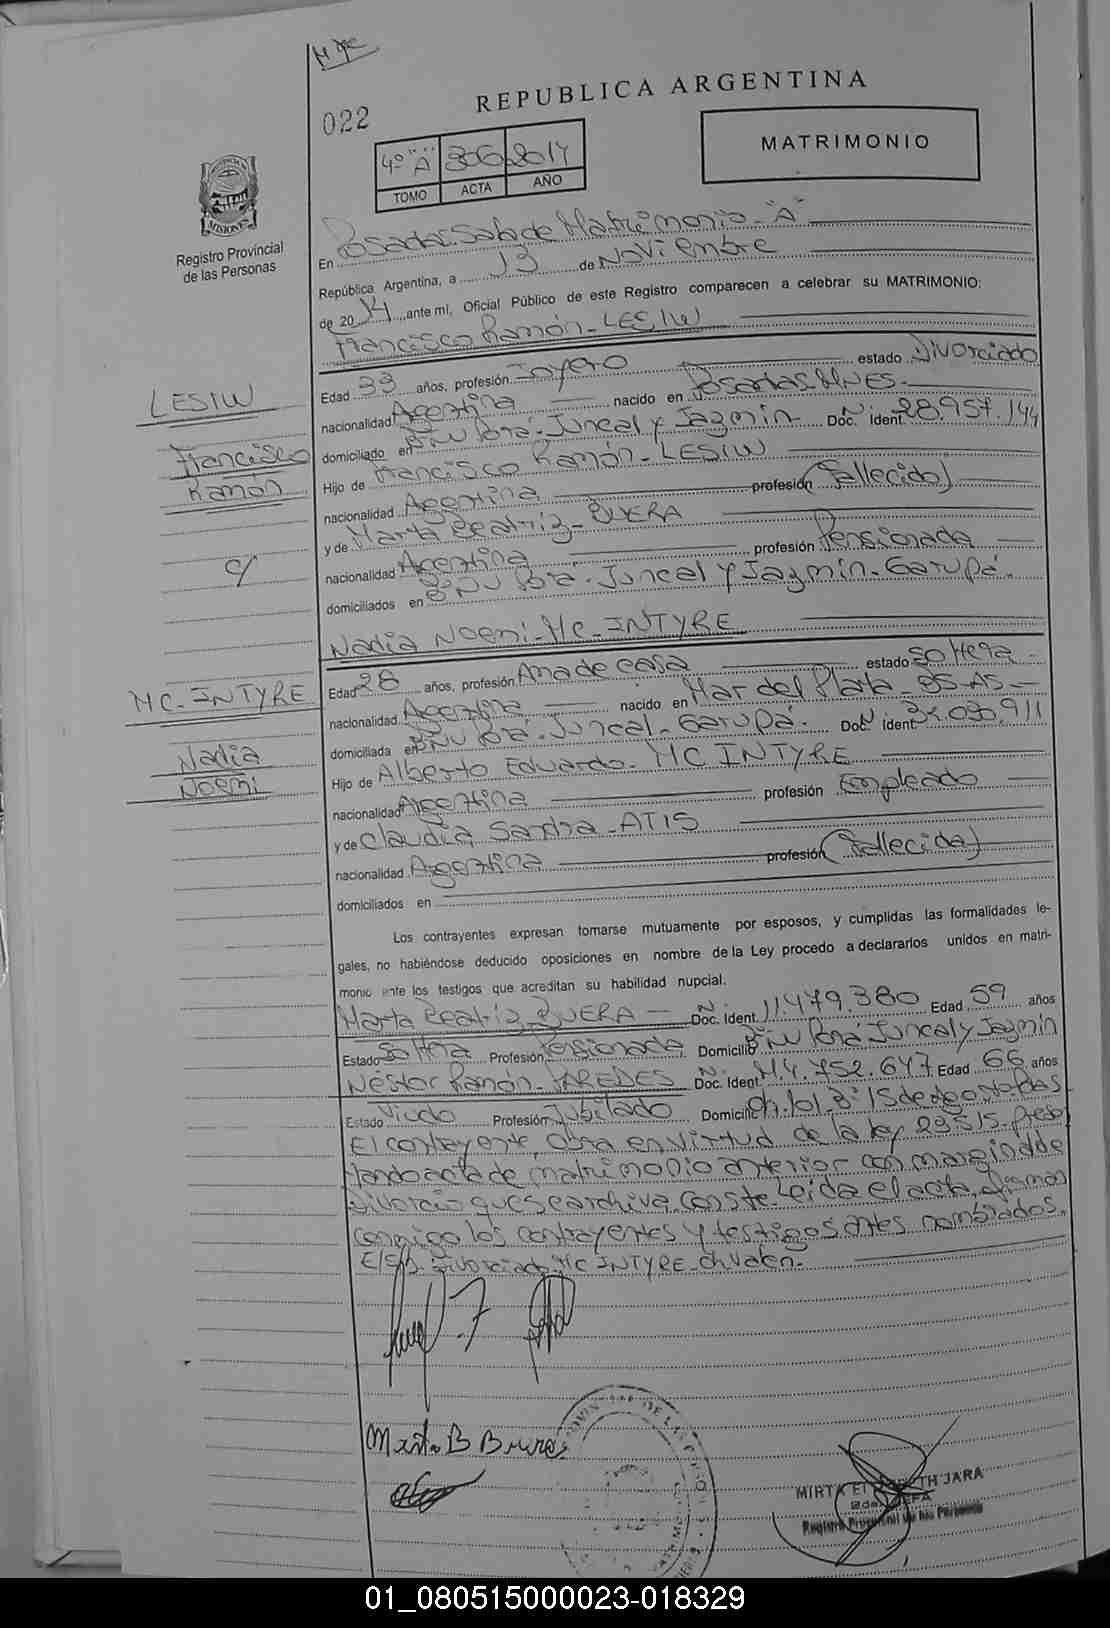 022
REPUBLICA ARGENTINA
4º "A" 306 2014
TOMO ACTA AÑO
MATRIMONIO
MISIONES
Registro Provincial
de las Personas
En Posadas Sala de Matrimonio "A"
República Argentina, a 13 de Noviembre
de 2014, ante mí, Oficial Público de este Registro comparecen a celebrar su MATRIMONIO:
Francisco Ramón - LESIW
LESIW
Francisco
Ramón
c/
MC. INTYRE
Nadia
Noemi
Edad 33 años, profesión Joyero estado Divorciado
nacionalidad Argentina nacido en Posadas. MNES.
domiciliado en Bº Ñu Porá. Juncal y Jazmín Doc. Ident. Nº 28.957.144
Hijo de Francisco Ramón - LESIW
nacionalidad Argentina profesión (Fallecido)
y de Marta Beatriz - BUERA
nacionalidad Argentina profesión Pensionada
domiciliados en Bº Ñu Porá. Juncal y Jazmín - Garupá.
Nadia Noemi - Mc - INTYRE
Edad 28 años, profesión Ama de casa estado Soltera
nacionalidad Argentina nacido en Mar del Plata - BS. AS
domiciliada en Bº Ñu Porá. Juncal - Garupá. Doc. Ident. Nº 030.911
Hijo de Alberto Eduardo - MC INTYRE
nacionalidad Argentina profesión Empleado
y de Claudia Sandra - ATIS
nacionalidad Argentina profesión (Fallecida)
domiciliados en
Los contrayentes expresan tomarse mutuamente por esposos, y cumplidas las formalidades le-
gales, no habiéndose deducido oposiciones en nombre de la Ley procedo a declararlos unidos en matri-
monio ante los testigos que acreditan su habilidad nupcial.
Marta Beatriz BUERA Doc. Ident. Nº 11.479.380 Edad 59 años
Estado Soltera Profesión Pensionada Domicilio Bº Ñu Porá Juncal y Jazmín
Nestor Ramón - PAREDES Doc. Ident. Nº M4.752.647 Edad 66 años
Estado Viudo Profesión Jubilado Domicilio Ch. 101 Bº 15 de agosto. Pdas
El contrayente, obra en virtud de la ley 29515. presen
tando acta de matrimonio anterior con marginal de
Divorcio que se archiva. Conste. Leída el acta, firman
conmigo los contrayentes y testigos antes nombrados.
E/S/R. Divorciado, MC INTYRE.
Marta B Buera
MIRTA JARA
Registro Provincial de las Personas
01_080515000023-018329